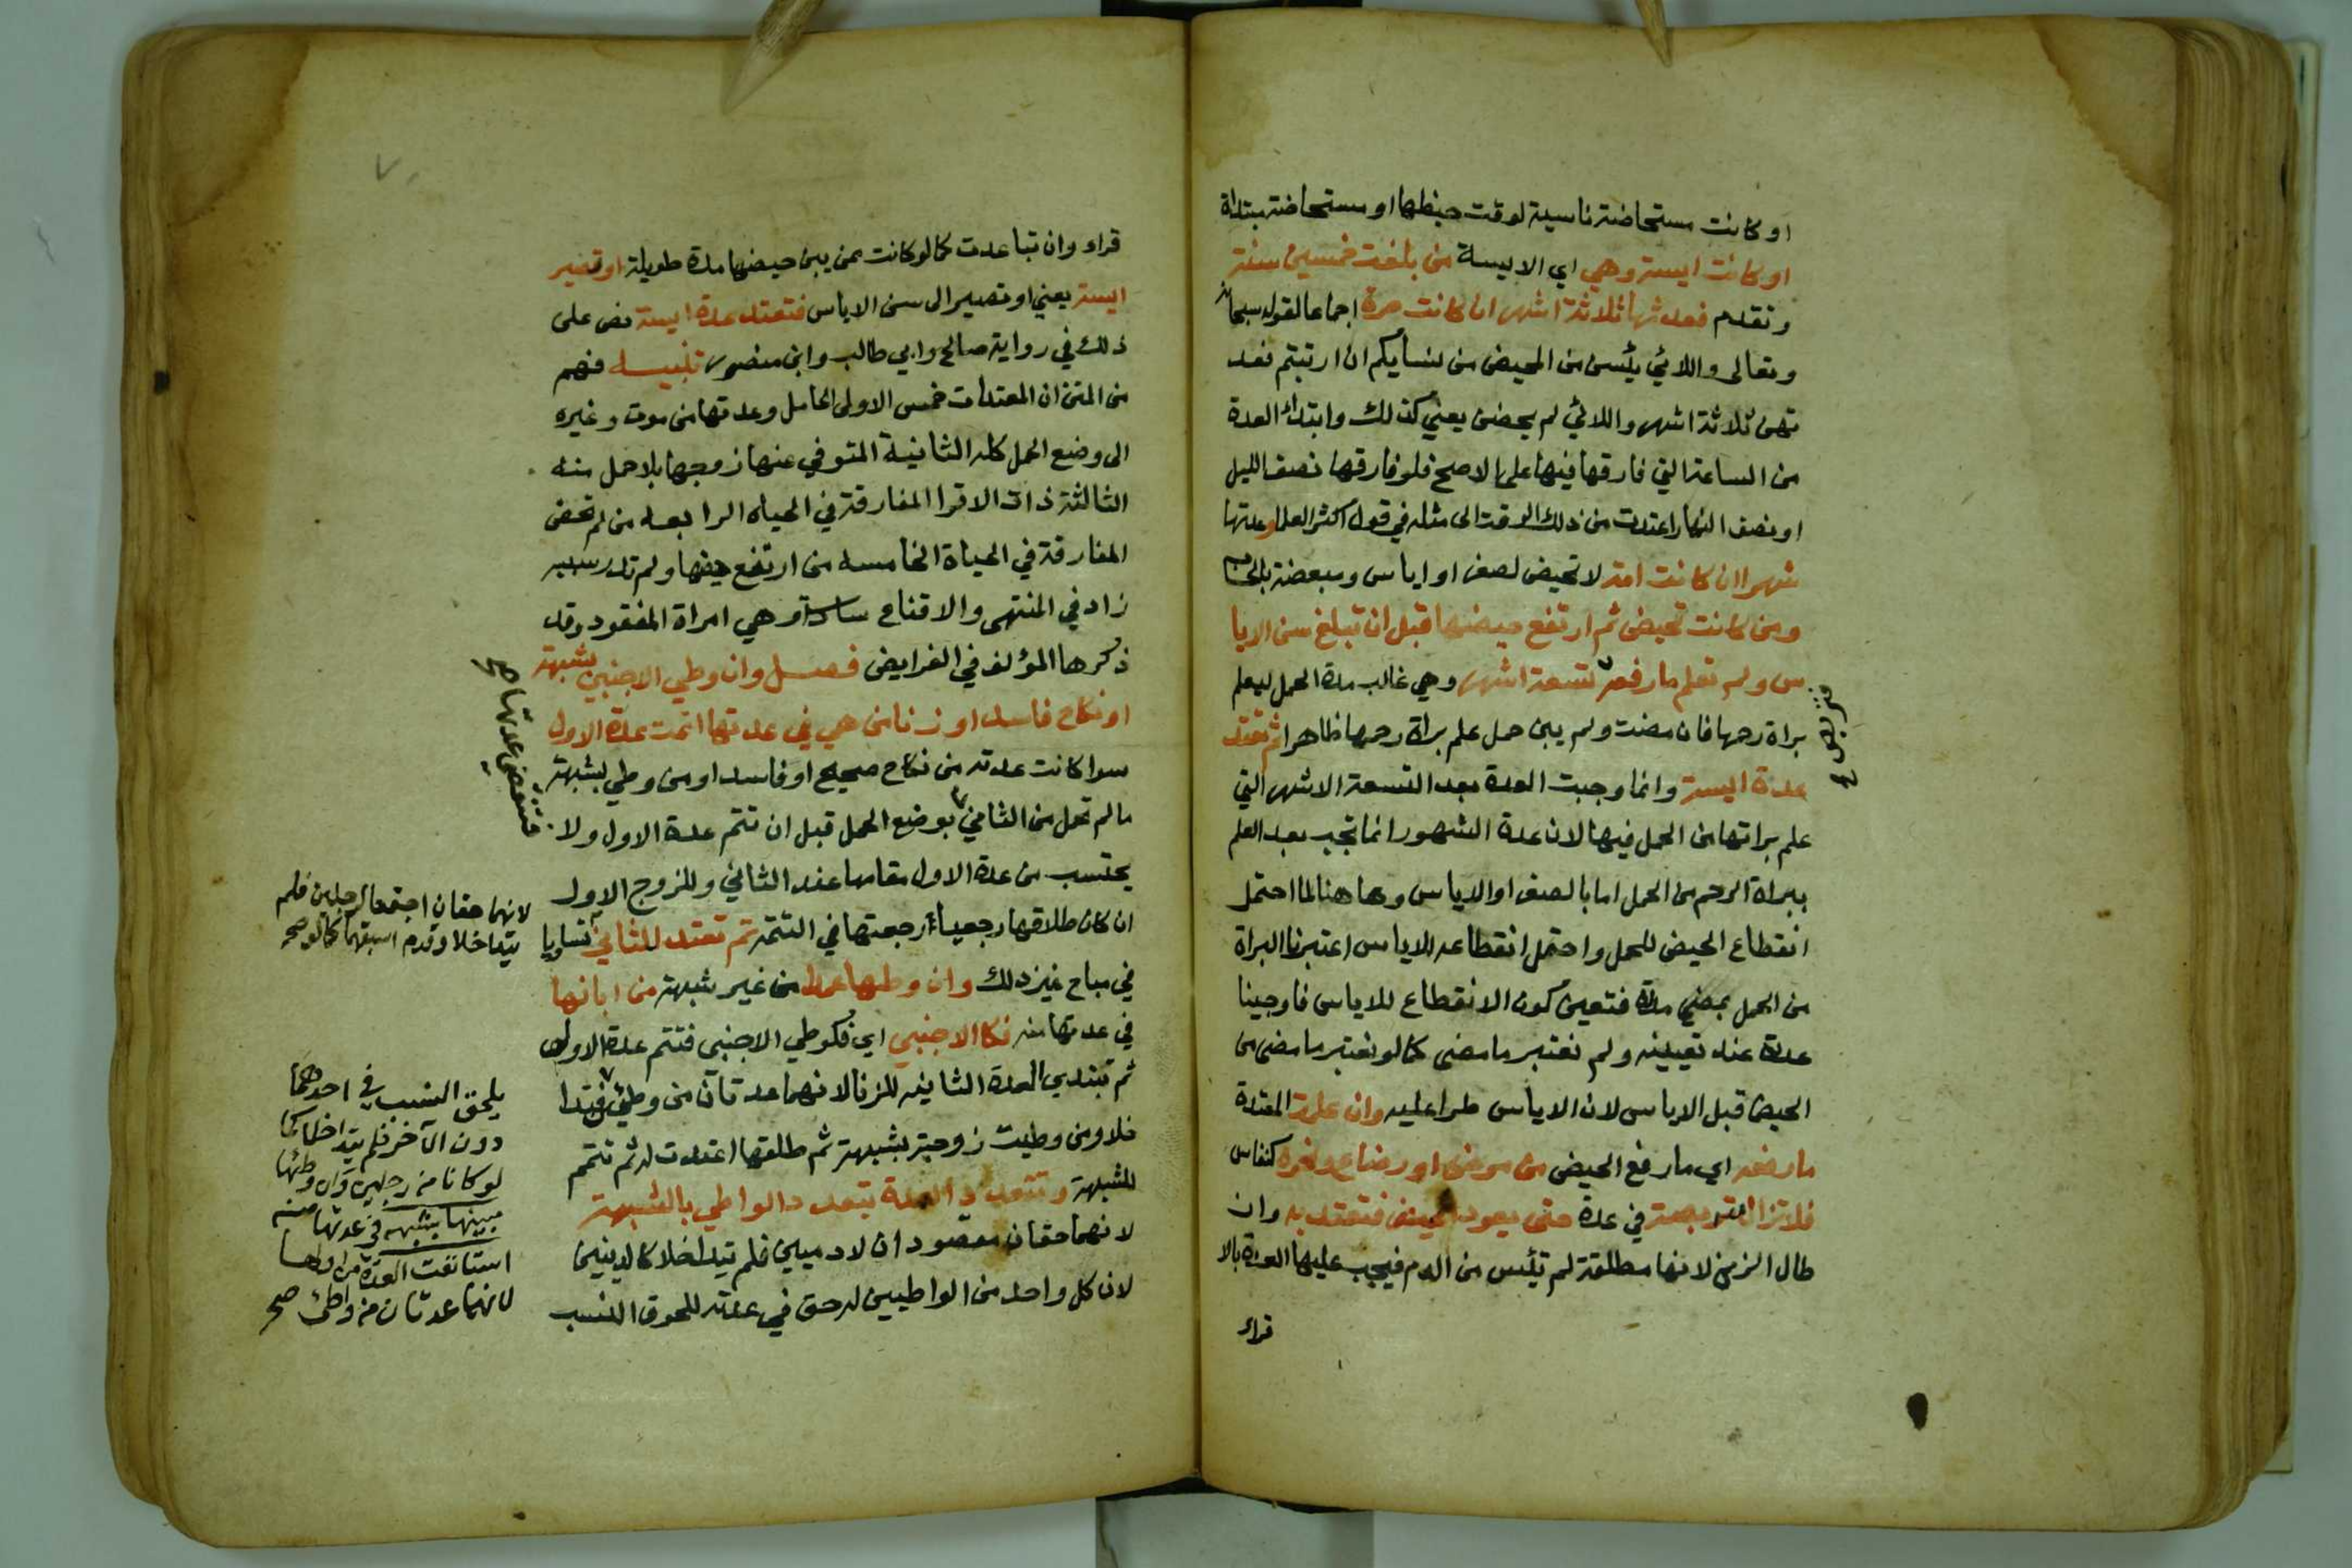 او كانت مستحاضة ناسية لوقت حيضها او مستحاضة مبتداة
او كانت ايسة وهي اي الايسة من بلغت خمسين سنة
وتقدم فعدتها ثلاثة اشهر ان كانت حرة اجماعا لقوله سبحانه
وتعالى واللائي يئسن من المحيض من نسايكم ان ارتبتم فعد
تهن ثلاثة اشهر واللائي لم يحضن يعني كذلك وابتداء العدة
من الساعة التي فارقها فيها على الاصح فلو فارقها نصف الليل
او نصف النهار اعتدت من ذلك الوقت الى مثله في قول اكثر العلما وعدتها
شهران كانت امة لا تحيض لصغر او اياس ومبعضة بالحساب
ومن كانت تحيض ثم ارتفع حيضها قبل ان تبلغ سن الايا
س ولم تعلم ما رفعه تسعة اشهر وهي غالب مدة الحمل ليعلم
براة رحمها فان مضت ولم يبن حمل علم براة رحمها ظاهرا ثم تعتد
عدة ايسة وانما وجبت العدة بعد التسعة الاشهر التي
علم براتها من الحمل فيها لان عدة الشهور انما تجب بعد العلم
ببراة الرحم من الحمل اما بالصغر او الاياس وها هنا لما احتمل
انقطاع الحيض للحمل واحتمل انقطاعه للاياس اعتبرنا البراة
من الحمل بمضي مدة فتعين كون الانقطاع للاياس فاوجبنا
عدة عند تعيينه ولم نعتبر ما مضى كما لو نعتبر ما مضى من
الحيض قبل الاياس لان الاياس طرا عليه وان علمت المعتدة
ما رفعه اي ما رفع الحيض من مرض او رضاع ونحوه كنفاس
فلا تزال متربصة في عدة حتى يعود الحيض فتعتد به وان
طال الزمن لانها مطلقة لم تيئس من الدم فيجب عليها العدة بالا
قراء
قراء وان تباعدت كما لو كانت ممن يبن حيضها مدة طويلة او تصير
ايسة يعني او تصير الى سن الاياس فتعتد عدة ايسة نص على
ذلك في رواية صالح وابي طالب وابن منصور تنبيه فهم
من المتن ان المعتدات خمس الاولى الحامل وعدتها من موت وغيره
الى وضع الحمل كله الثانية المتوفي عنها زوجها بلا حمل منه
الثالثة ذات الاقرا المفارقة في الحياه الرابعه من لم تحض
المفارقة في الحياة الخامسه من ارتفع حيضها ولم تدر سببه
زاد في المنتهى والاقناع سادسة وهي امراة المفقود وقد
ذكرها المؤلف في الفرايض فصل وان وطي الاجنبي بشبهة
او نكاح فاسد او زنا من هي في عدتها اتمت عدة الاول
سوا كانت عدته من نكاح صحيح او فاسد او من وطي بشبهة
ما لم تحمل من الثاني بوضع الحمل قبل ان تتم عدة الاول ولا
فتنقضي عدتها صح
يحتسب من عدة الاول مقامها عند الثاني وللزوج الاول
ان كان طلاقها رجعيا رجعتها في التتمة ثم تعتد للثاني تساويا
لانهما حقان اجتمعا لرجلين فلم
يتداخلا وقدم اسبقهما كما لو صح
في مباح غير ذلك وان وطيها عمدا من غير شبهة من ابانها
في عدتها منه فكالاجنبي اي فكوطي الاجنبي فتتم عدة الاولى
ثم تبتدي العدة الثانية للزنا لانهما عدتان من وطئ
يلحق النسب في احدهما
دون الآخر فلم يتداخلا كما
لو كانا من رجلين وان وطئها
مبينها بشبهة في عدتها منه
استانفت العدة من اولها
لانهما عدتان من واطئ صح
فلا ومن وطيت زوجته بشبهة ثم طلقها اعتدت له ثم تتمم
للشبهة وتتعدد العدة بتعدد الواطي بالشبهة
لانهما حقان مقصودان لادميين فلم يتداخلا كالدينين
لان كل واحد من الواطيين له حق في عدته للحوق النسب